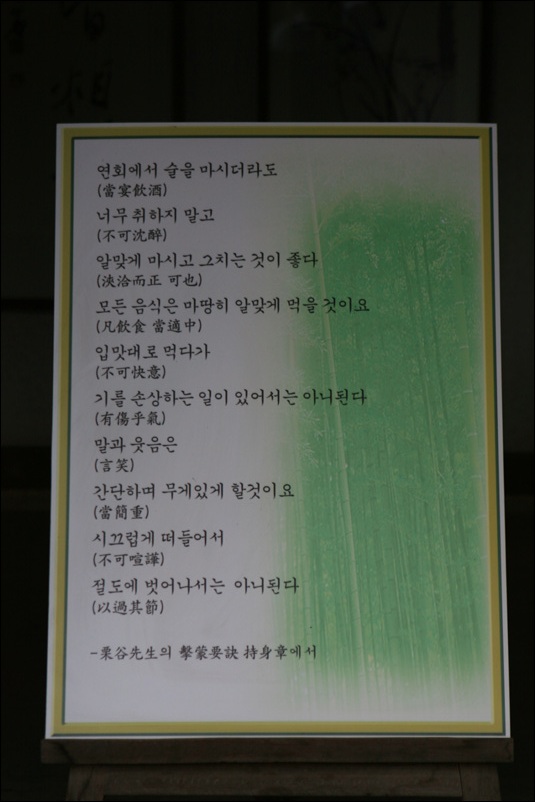 연회에서 술을 마시더라도
(當宴飮酒)
너무 취하지 말고
(不可沈醉)
알맞게 마시고 그치는 것이 좋다
(浹洽而正 可也)
모든 음식은 마땅히 알맞게 먹을 것이요
(凡飮食 當適中)
입맛대로 먹다가
(不可快意)
기를 손상하는 일이 있어서는 아니된다
(有傷乎氣)
말과 웃음은
(言笑)
간단하며 무게있게 할것이요
(當簡重)
시끄럽게 떠들어서
(不可喧譁)
절도에 벗어나서는 아니된다
(以過其節)
-栗谷先生의 擊蒙要訣 持身章에서